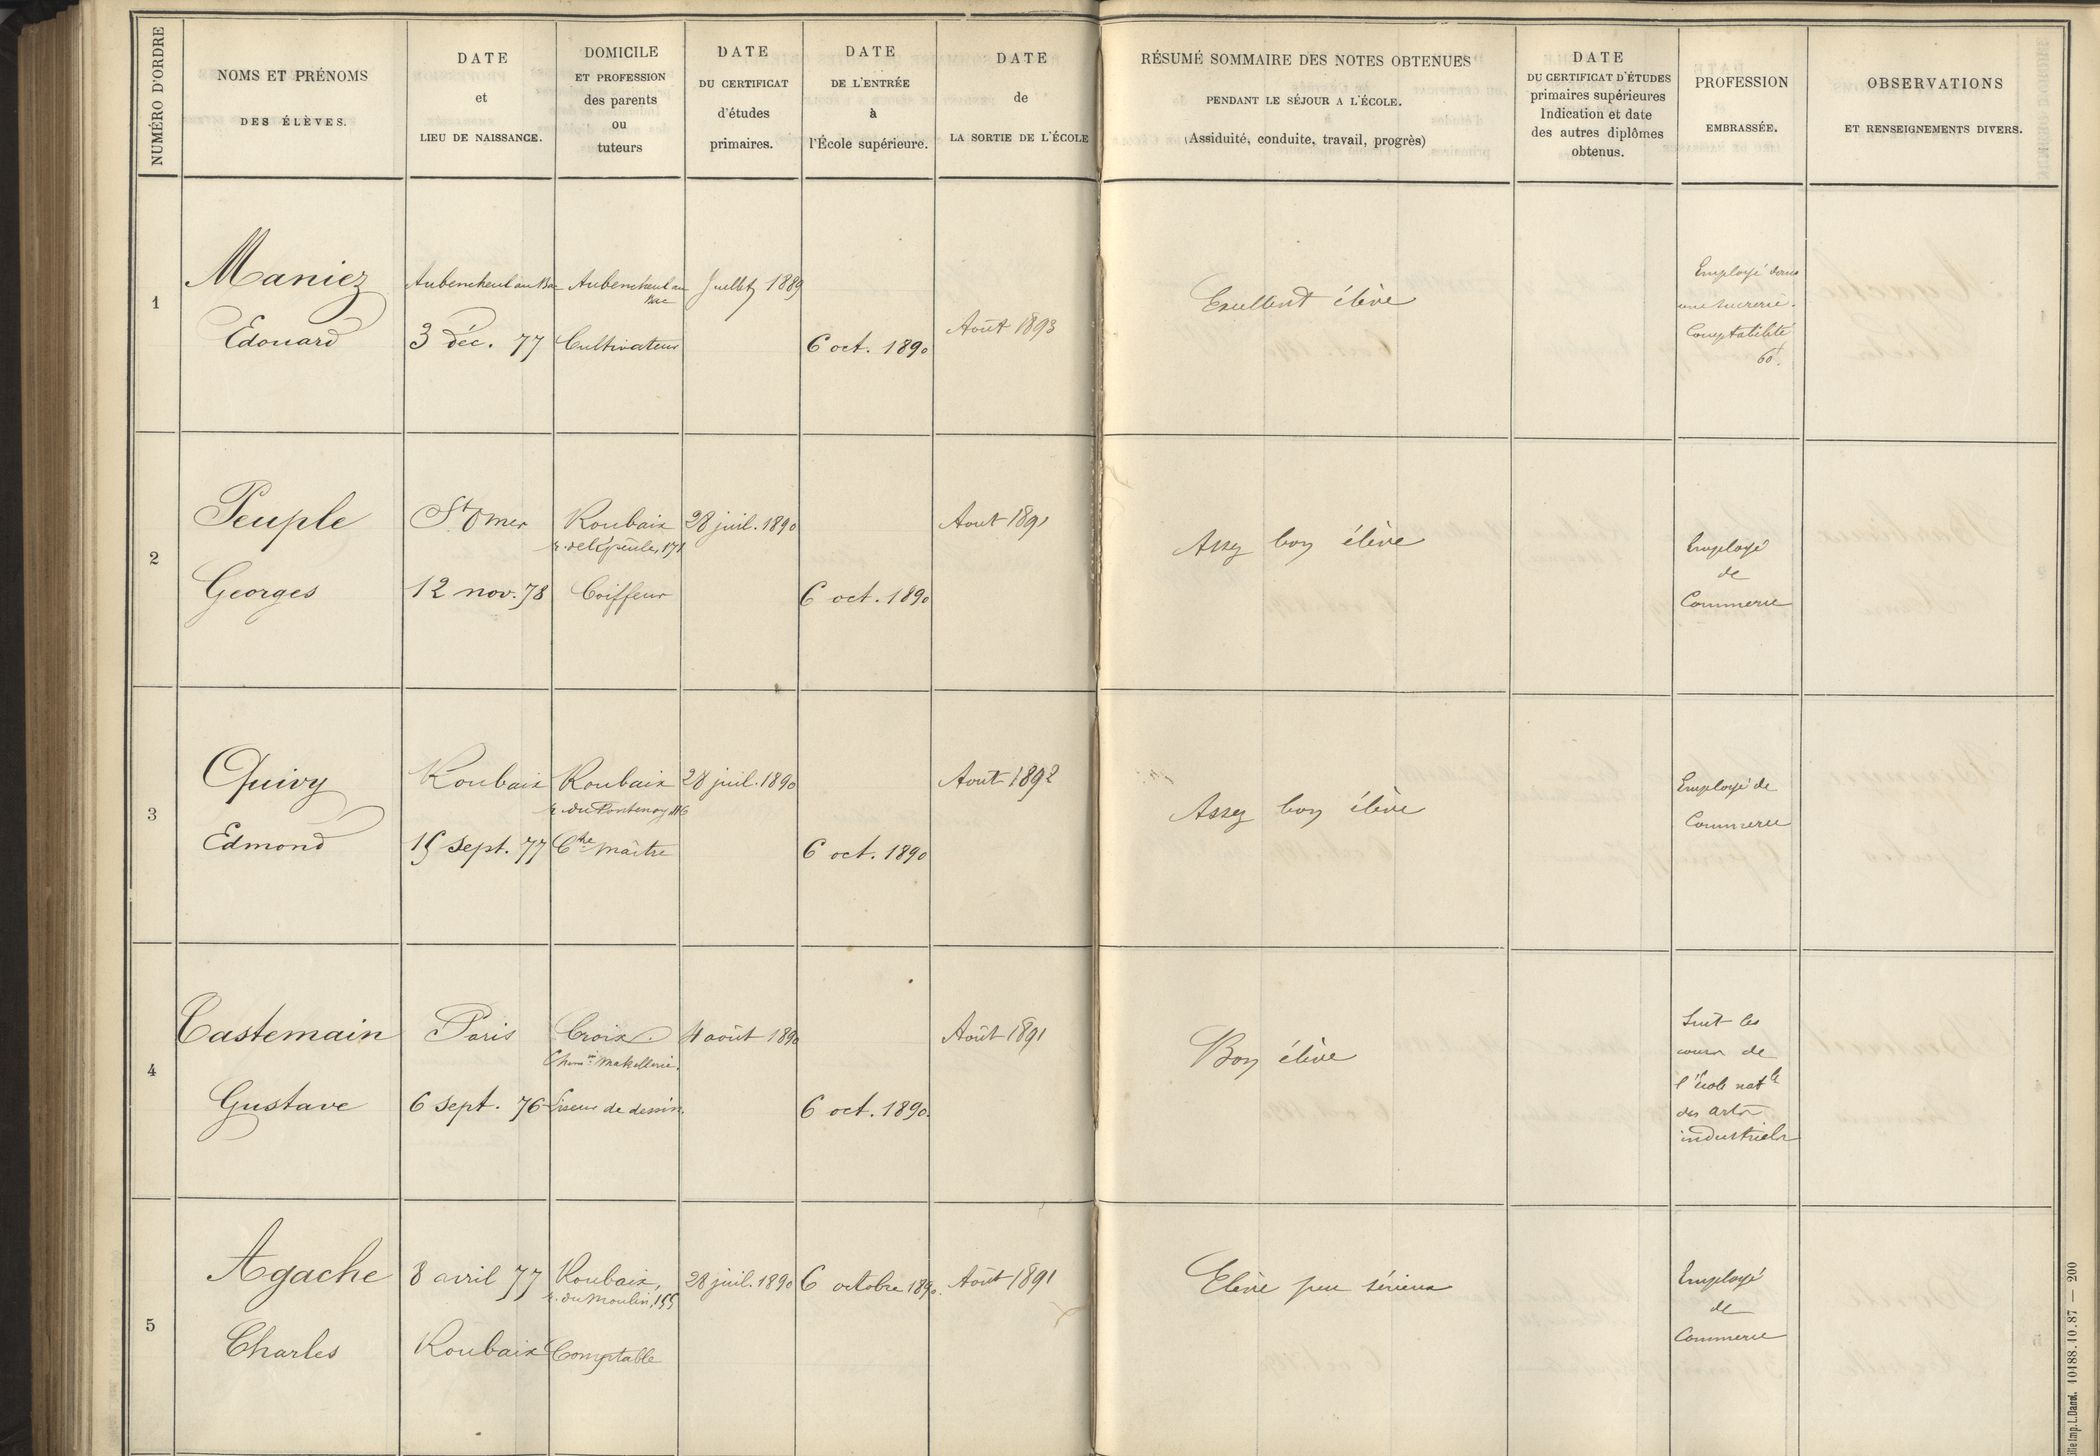 NUMÉRO D'ORDRE
NOMS ET PRÉNOMS
DES ÉLÈVES.
DATE
et
LIEU DE NAISSANCE.
DOMICILE
ET PROFESSION
des parents
ou
tuteurs
DATE
DU CERTIFICAT
d'études
primaires.
DATE
DE L'ENTRÉE
à
l'École supérieure.
DATE
de
LA SORTIE DE L'ÉCOLE
RÉSUMÉ SOMMAIRE DES NOTES OBTENUES
PENDANT LE SÉJOUR A L'ÉCOLE.
(Assiduité, conduite, travail, progrès)
DATE
DU CERTIFICAT D'ÉTUDES
primaires supérieures
Indication et date
des autres diplômes
obtenus.
PROFESSION
EMBRASSÉE.
OBSERVATIONS
ET RENSEIGNEMENTS DIVERS.
1
Maniez
Edouard
Aubencheul au Bac
3 déc. 77
Aubencheul au
Bac
Cultivateur
Juillet 1889
6 oct. 1890
Août 1893
Excellent élève
Employé dans
une sucrerie.
Comptabilité
60f.
2
Peuple
Georges
St Omer
12 nov. 78
Roubaix
r. de l'Epeule, 171
Coiffeur
28 juil. 1890
6 oct. 1890
Aout 1891
Assez bon élève
Employé
de
Commerce
3
Quivy
Edmond
Roubaix
15 sept. 77
Roubaix
r. du Fontenoy, 116
Cthe maître
28 juil. 1890
6 oct. 1890
Aout 1892
Assez bon élève
Employé de
Commerce
4
Castemain
Gustave
Paris
6 sept. 76
Croix.
Chemin Makellerie.
Liseur de dessin.
4 août 1890
6 oct. 1890.
Août 1891
Bon élève
Suit les
cours de
l'école natle
des arts
industriels
5
Agache
Charles
8 avril 77
Roubaix
Roubaix,
r. du Moulin, 155
Comptable
28 juil. 1890
6 octobre 1890.
Août 1891
Elève peu sérieux
Employé
de
Commerce
Imp. L. Danel. 10488.10.87 — 200